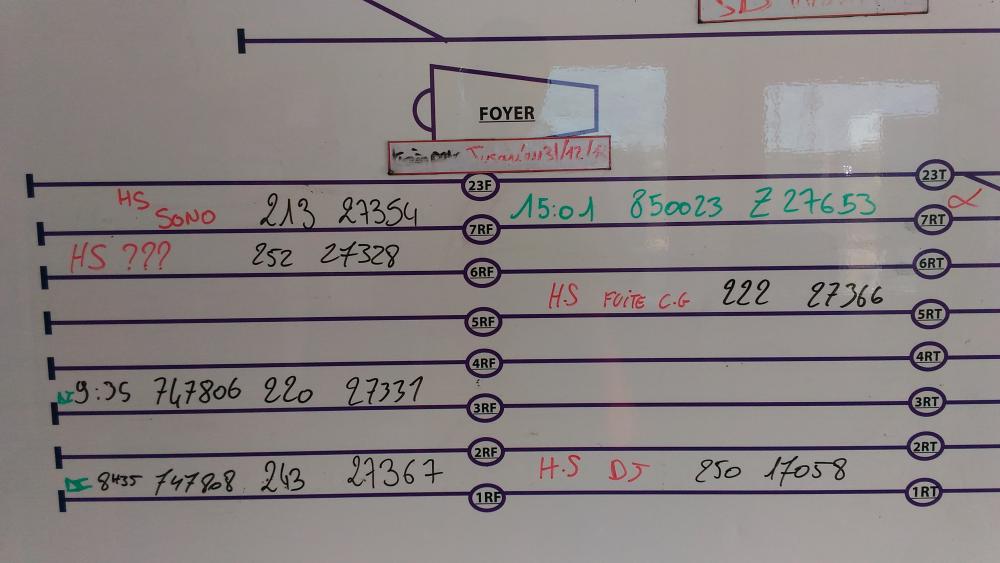 FOYER
23F 23T
HS SONO 213 27354 15:01 850023 Z 27653
7RF 7RT
HS ??? 252 27328
6RF 6RT
HS FUITE C.G 222 27366
5RF 5RT
4RF 4RT
9:35 747806 220 27331
3RF 3RT
2RF 2RT
8H35 747808 243 27367 H.S DJ 850 17058
1RF 1RT